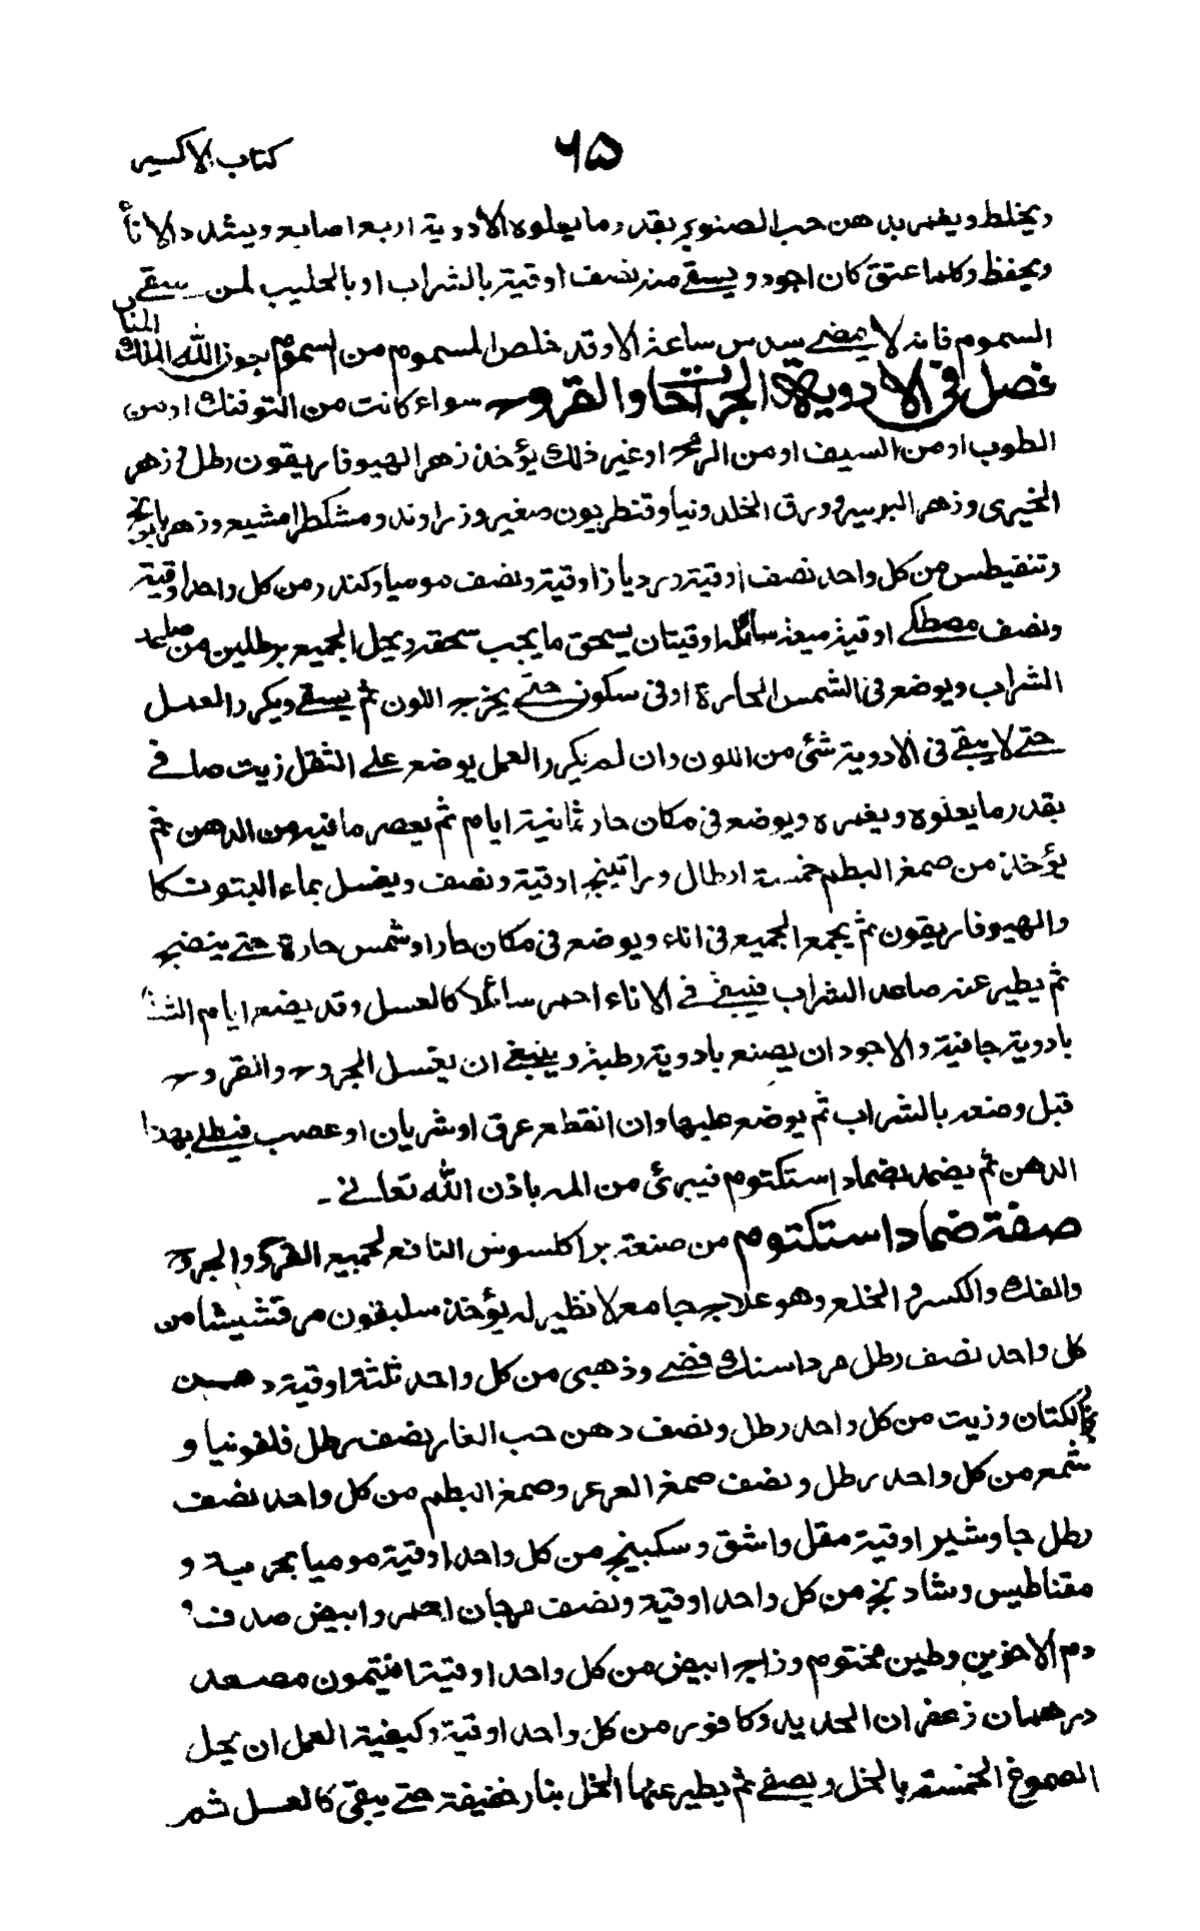 ٦٥
كتاب الاكسير
ويخلط ويغمر بدهن حب الصنوبر بقدر ما يعلوه الادوية اربعه اصابع ويشد د الاناء
ويحفظ وكلما عتق كان اجود ويسقے منه نصف اوقية بالشراب او بالحليب لمن سقے
السموم فانه لا يمضے سدس ساعة الا وقد خلص المسموم من السموم بعون الله الملك المنان
فصل فى الادوية الجراحات والقروح سواء كانت من التوفنك او من
الطوب او من السيف او من الرمح او غير ذلك يؤخذ زهر الهيوفاريقون رطل زهر
الخيرى وزهر البوسير وورق الخلدونيا وقنطريون صغير وزراوند ومشكطرامشيع وزهر بابونج
وتنقيطس من كل واحد نصف اوقية نصف موميا وكندر من كل واحد اوقية
ونصف مصطكے اوقية ميعة سائله اوقيتان يسحق ما يجب سحقه ويحل الجميع برطلين من
الشراب ويوضع فى الشمس الحارة او فى سكون حتے يخرج اللون ثم يسقے ويكرر العسل
حتے لا يبقے فى الادوية شئ من اللون وان لم يكرر العمل يوضع علے الثقل زيت صافے
بقدر ما يعلوه ويغمره ويوضع فى مكان حار ثمانية ايام ثم يعصر ما فيه من الدهن ثم
يؤخذ من صمغ البطم خمسة ارطال وراتينج اوقية ونصف ويغسل بماء البتونكا
والهيوفاريقون ثم يجمع الجميع فى اناء ويوضع فى مكان حار او شمس حارة حتے ينضج
ثم يطير عنه صاعد الشراب فيبقے فے الاناء احمر سائلا كالعسل وقد يضع ايام الشتا
بادوية جافية والاجود ان يصنع بادوية رطبة وينبغے ان يغتسل الجروح والقروح
قبل وضعه بالشراب ثم يوضع عليها وان انقطع عرق او شريان او عصب فيطلے بهذا
الدهن ثم يضمد بضماد استكتوم فيبرئ من الله باذن الله تعالے۔
صفة ضماد استكتوم من صنعة براكلسوس النافع لجميع القروح والجروح
والفك والكسر والخلع وهو علاج جامع لا نظير له يؤخذ سليقون مرقشيشا من
كل واحد نصف رطل مرداسنك فضے وذهبى من كل واحد ثلثة اوقية دهن
الكتان وزيت من كل واحد رطل ونصف دهن حب الغار نصف رطل قلفونيا و
شمع من كل واحد رطل ونصف صمغ العرعر وصمغ البطم من كل واحد نصف
رطل جاوشير اوقية مقل واشق وسكبينج من كل واحد اوقية موميا بحرمية و
مقناطيس وشادنج من كل واحد اوقية ونصف مرجان احمر وابيض صدف
دم الاخوين وطين مختوم وزاج ابيض من كل واحد اوقية انتيمون مصعد
درهمان زعفران الحديد وكافور من كل واحد اوقية وكيفية العمل ان يحل
الصموغ الخمسة بالخل ويصفے ثم يطير عنها الخل بنار خفيفة حتے يبقى كالعسل ثم